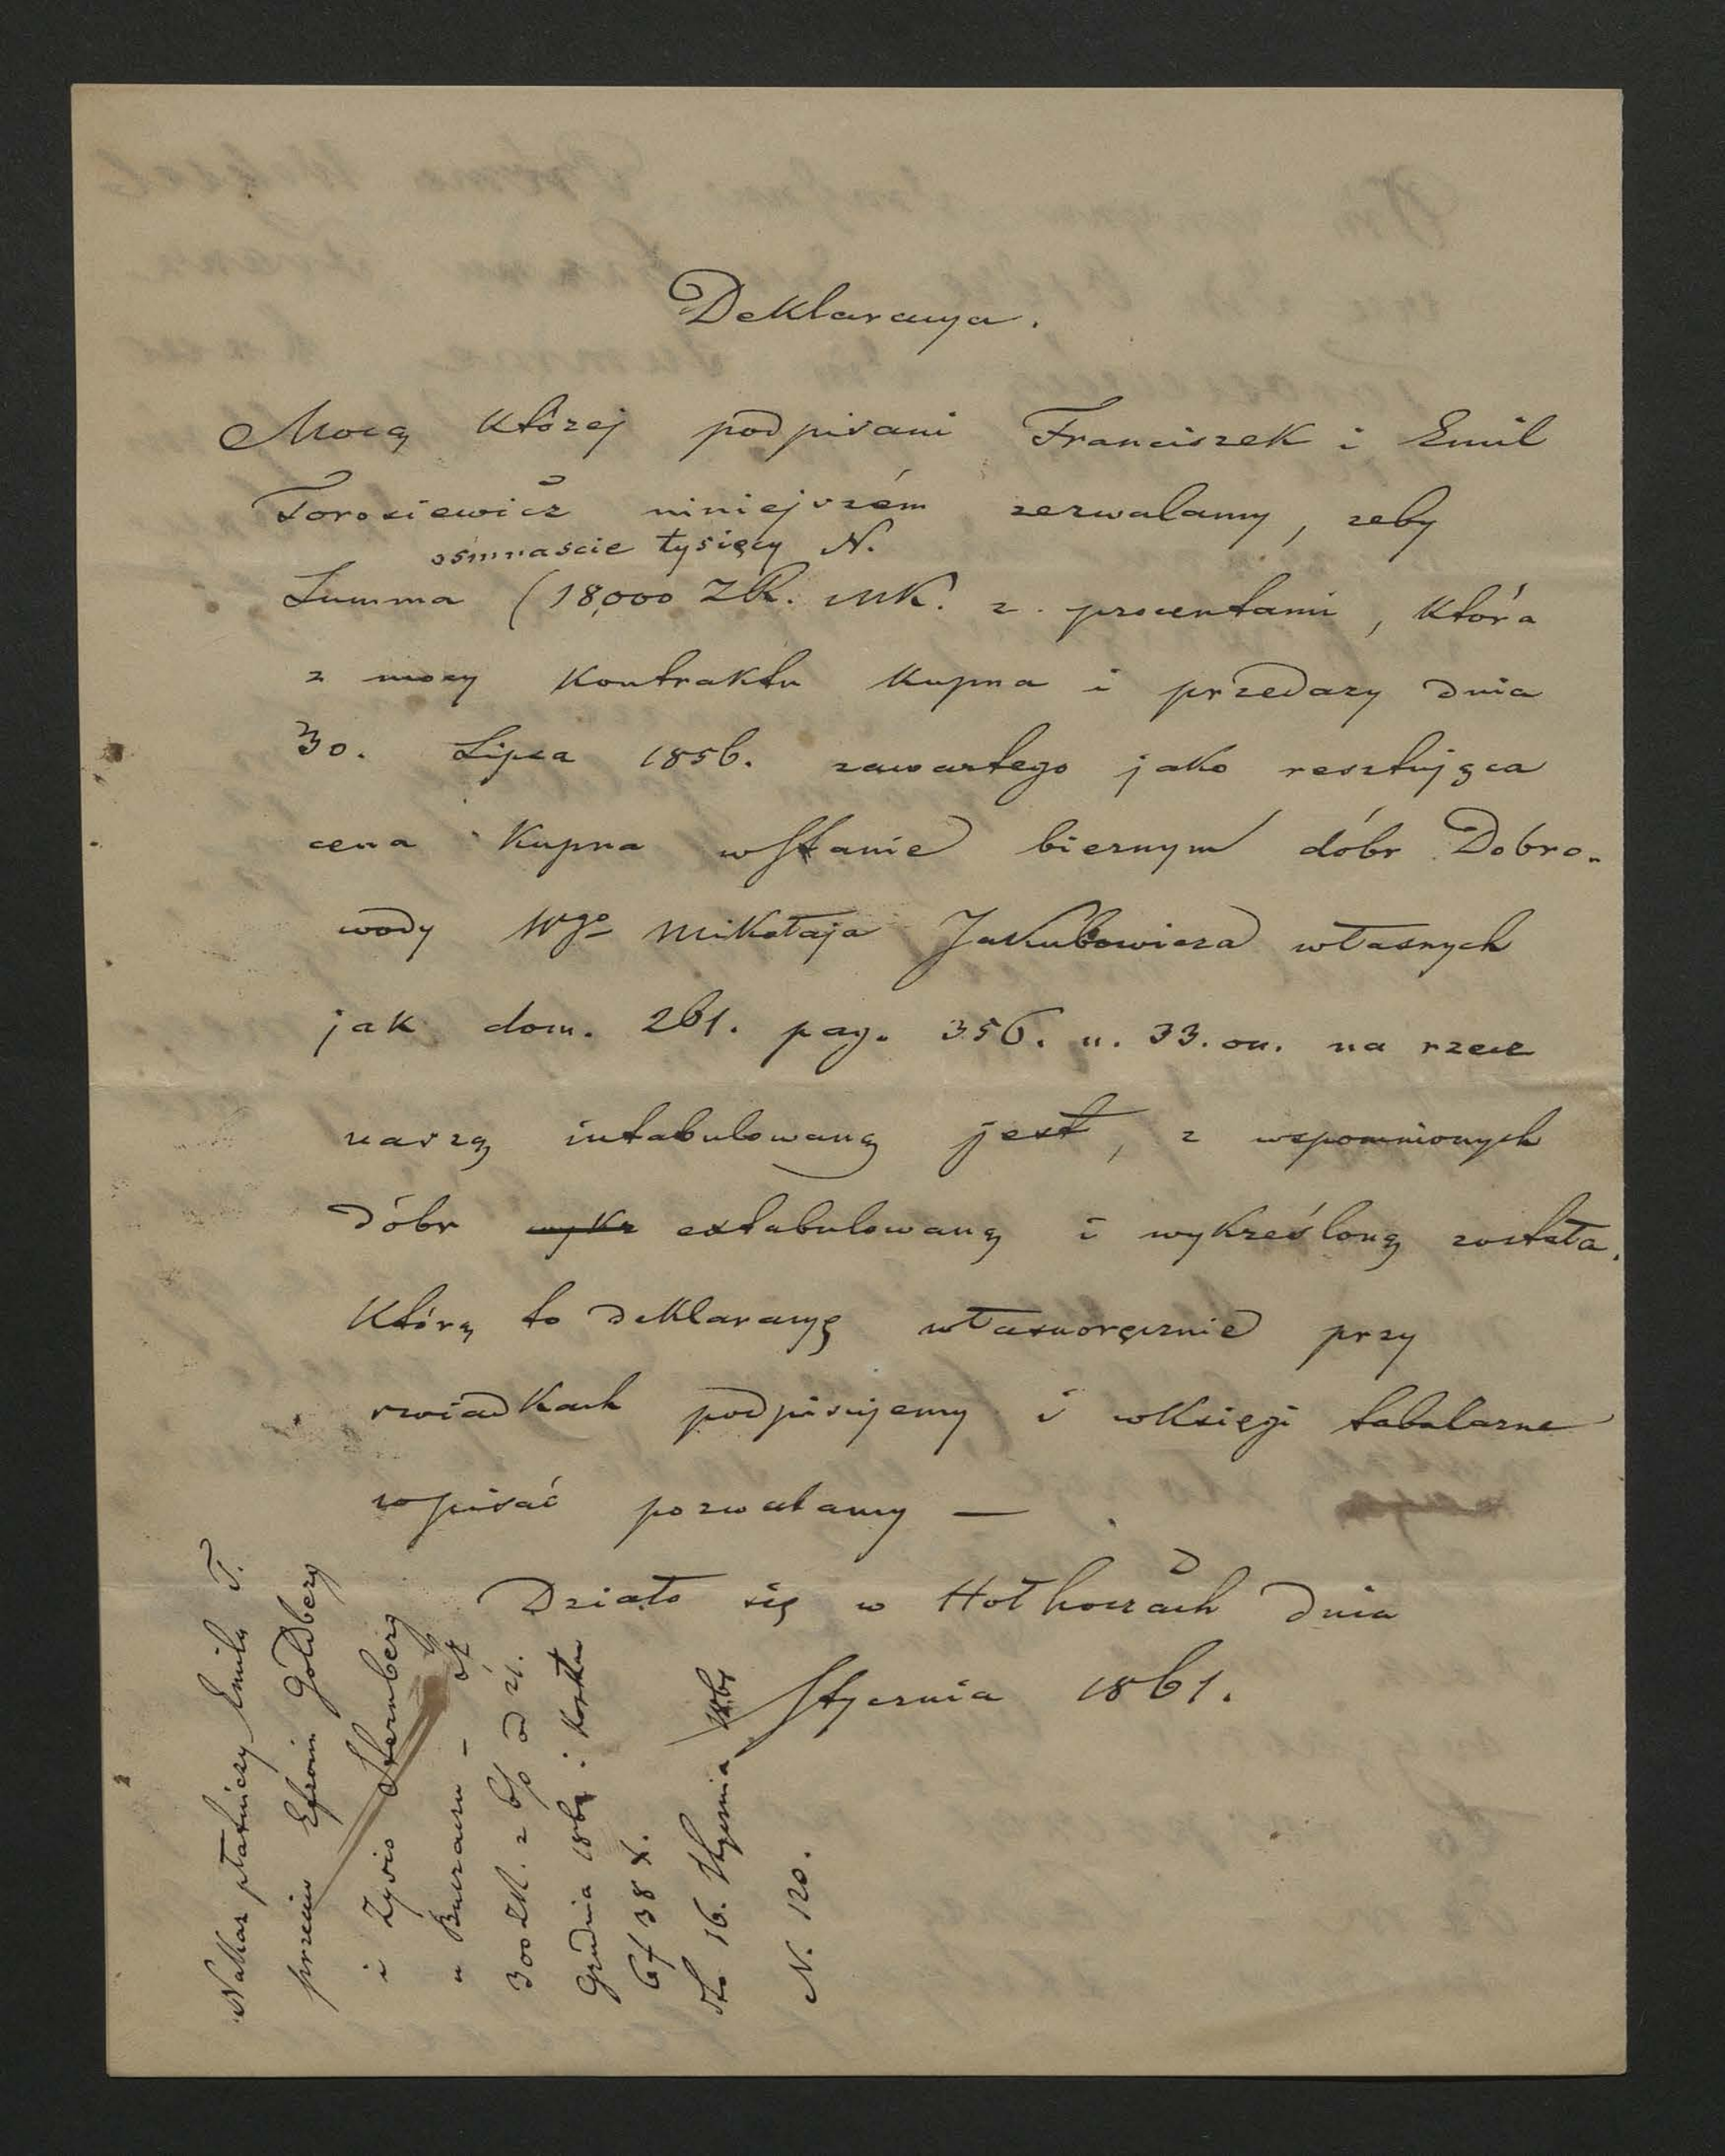 Deklaracya.
Mocą której podpisani Franciszek i Emil
Torosiewicz niniejszém zezwalamy, zeby
osmnascie tysięcy N.
Summa (18,000 ZR. MK. z procentami, która
z mocy Kontraktu Kupna i przedazy dnia
30. Lipca 1856. zawartego jako resztująca
cena Kupna w Stanie biernym dóbr Dobro-
wody Wgo Mikołaja Jakubowicza własnych
jak dom. 261. pag. 356. n. 33. on. na rzecz
naszą intabulowaną jest, z wspomnionych
dóbr wykr extabulowaną i wykreśloną została.
Którą to deklaracyę własnoręcznie przy
swiadkach podpisujemy i w Księgi tabularne
wpisać pozwalamy —
Działo się w Hołhoczach dnia
Stycznia 1861.
Nakaz płatniczy Emila T.
przeciw Efroim Goldberg
i Zysio Sternberg
w Buczaczu –
300 ZR. z 6% od 21.
Grudnia 186 : Kosztu
6f 38 x.
dto 16. Stycznia 1861
N. 120.